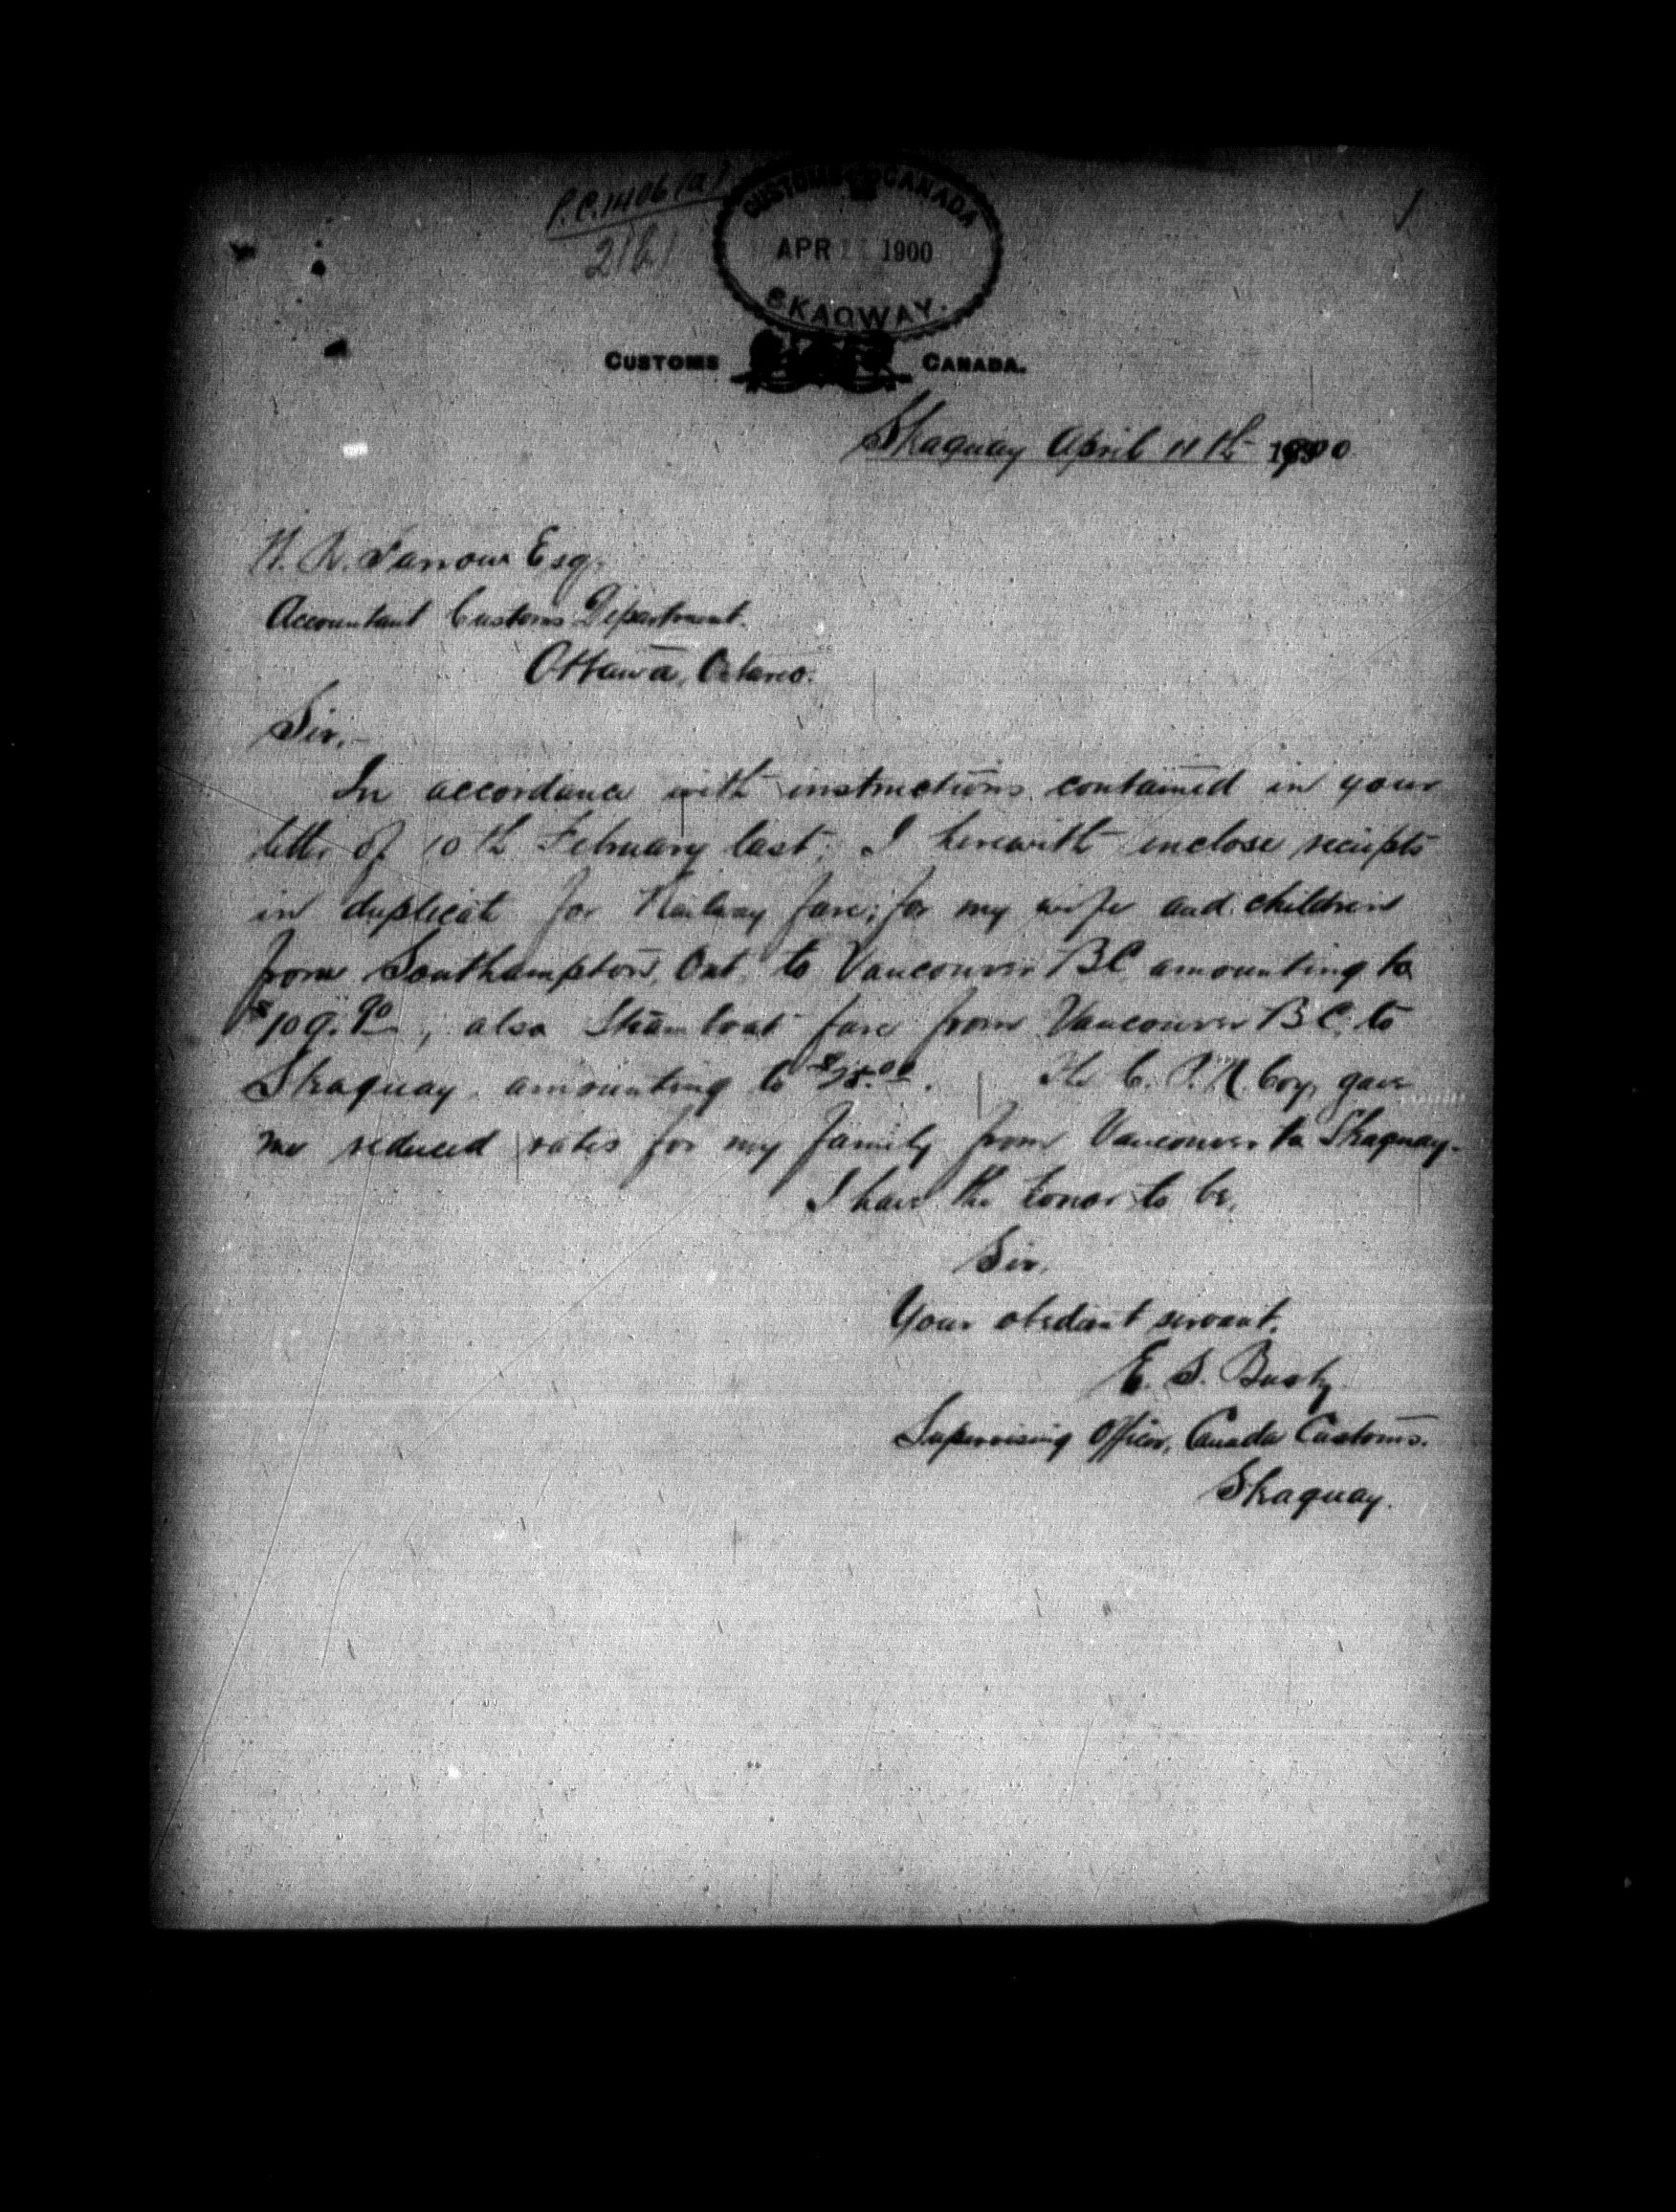 P.C. 1406 (a)
2(b)
1
CUSTOMS CANADA
APR 11 1900
SKAGWAY.
CUSTOMS CANADA.
Skaguay April 11th 1900
Esq.
Accountant Customs Department.
Ottawa, Ontario.
Sir,-
In accordance with instructions contained in your
letter of 10th February last, I herewith inclose receipts
in duplicate for Railway fare, for my wife and children
from Southampton, Ont. to Vancouver BC. amounting to
$109.90, also Steamboat fare from Vancouver BC. to
Skaguay amounting to . The C. P. N. Coy, gave
me reduced rates for my family from Vancouver to Skaguay.
I have the honor to be,
Sir,
Your obedient servant,
E. S. Busby
Supervising Officer, Canada Customs.
Skaguay.